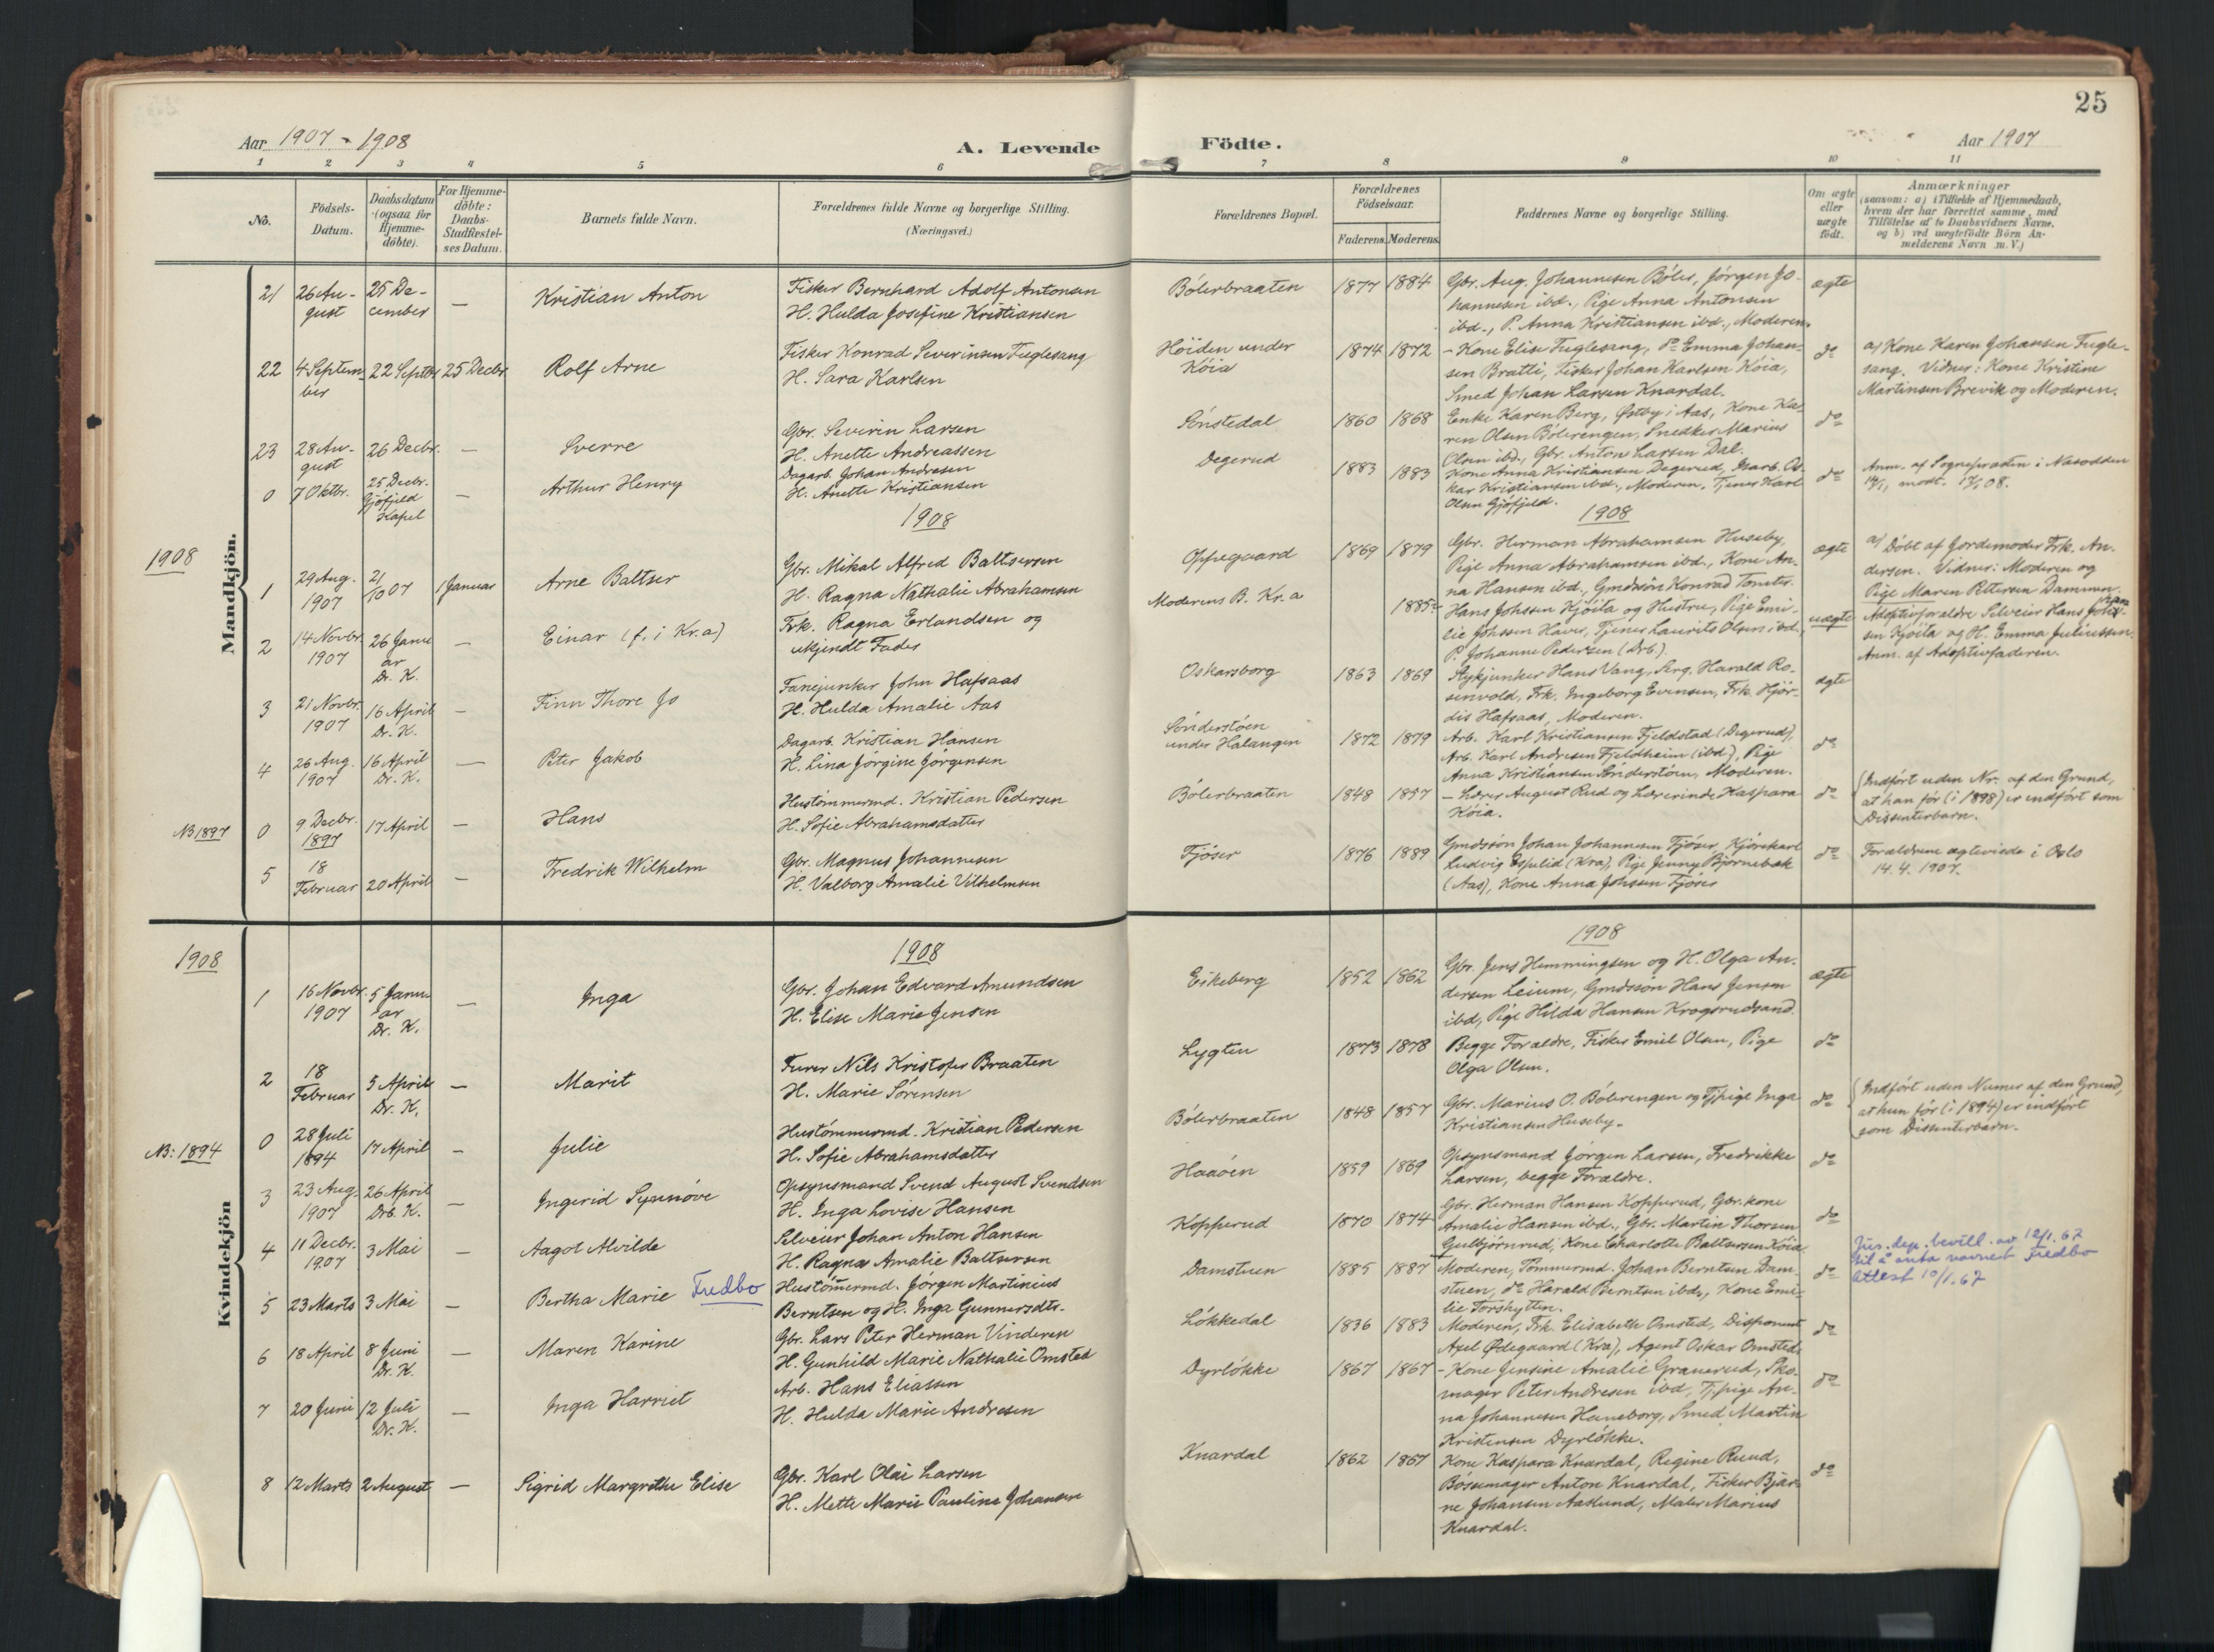 25
Aar 1907 - 1908
A. Levende Födte.
Aar 1907
1 2 3 4 5 6 7 8 9 10 11
No.
Födsels-
Datum.
Daabsdatum
(ogsaa for
Hjemme-
döbte).
For Hjemme-
döbte:
Daabs-
Stadfæstel-
ses Datum.
Barnets fulde Navn.
Forældrenes fulde Navne og borgerlige Stilling.
(Næringsvei.)
Forældrenes Bopæl.
Forældrenes
Födselsaar.
Faderens. Moderens.
Faddernes Navne og borgerlige Stilling.
Om ægte
eller
uægte
födt.
Anmærkninger
(saasom: a) i Tilfælde af Hjemmedaab,
hvem der har forrettet samme, med
Tilföielse af to Daabsvidners Navne,
og b) ved uægtefödte Börn An-
melderens Navn m. V.)
Mandkjön.
21
26 Au-
gust
25 De-
cember
—
Kristian Anton
Fisker Bernhard Adolf Antonsen
H. Hulda Josefine Kristiansen
Bölerbraaten
1877 1884
Gbr. Aug. Johannesen Böler, Jörgen Jo-
hannesen ibd., Pige Anna Antonsen
ibd., P. Anna Kristiansen ibd., Moderen.
ægte
22
4 Septem-
ber
22 Septbr
25 Decbr
Rolf Arne
Fisker Konrad Severinsen Fuglesang
H. Sara Karlsen
Höiden under
Kóia
1874 1872
- Kone Elise Fuglesang, do Emma Johan-
sen Bratli, Fisker Johan Karlsen Kóia,
Smed Johan Larsen Knardal.
do
a) Kone Karen Johansen Fugle-
sang. Vidner: Kone Kristine
Martinsen Brevik og Moderen.
23
28 Au-
gust
26 Decbr.
—
Sverre
Gbr. Severin Larsen
H. Anette Andreassen
Sönstedal
1860 1868
Enke Karen Berg, Østby i Aas, Kone Ka-
ren Olsen Bölerengen, Snedker Marius
Olsen ibd., Gbr. Anton Larsen Dal.
do
0
7 Oktbr.
25 Decbr.
Gjöfjeld
Kapel
—
Arthur Henry
Dagarb. Johan Andresen
H. Anette Kristiansen
Degerud
1883 1883
Kone Anna Kristiansen Degerud, Isarb. Os-
kar Kristiansen ibd., Moderen, Tjener Karl
Olsen Gjöfjeld.
do
Anm. af Sognepræsten i Næsodden
1908
1908
1908
1
29 Aug.
1907
21/10 07
1 Januar
Arne Baltser
Gbr. Mikal Alfred Baltsersen
H. Ragna Nathalie Abrahamsen
Oppegaard
1869 1879
Gbr. Herman Abrahamsen Huseby,
Pige Anna Abrahamsen ibd., Kone An-
na Hansen ibd., Gmdssön Konrad Tomter.
ægte
a) Döbt af Jordemoder Frk. An-
dersen. Vidner: Moderen og
Pige Maren Petersen Dammen.
2
14 Novbr.
1907
26 Janu
ar
Dr. K.
—
Einar (f. i Kr.a)
Frk. Ragna Erlandsen og
ukjendt Fader
Moderens B. Kr.a
1885
Hans Johssen Kjöila og Hustru, Pige Emi-
lie Johssen Haver, Tjener Laurits Olsen ibd.,
P. Johanne Pedersen (Drb.).
uægte
Adoptivforældre Selveier Hans Johan-
sen Kjöila og H. Emma Juliussen.
Anm. af Adoptivfaderen.
3
21 Novbr.
1907
16 April
Dr. K.
—
Finn Thore Jo
Fanejunker John Hafsaas
H. Hulda Amalie Aas
Oskarsborg
1863 1869
Stykjunker Hans Vang, Serg. Harald Ro-
senvold, Frk. Ingeborg Evensen, Frk. Hjör-
dis Hafsaas, Moderen.
ægte
4
26 Aug.
1907
16 April
Dr. K.
—
Peter Jakob
Dagarb. Kristian Hansen
H. Lina Jörgine Jörgensen
Sönderstöen
under Halangen
1872 1879
Arb. Karl Kristiansen Fjeldstad (Degerud),
Arb. Karl Andresen Fjeldheim (ibd), Pige
Anna Kristiansen Sönderstöen, Moderen.
do
NB 1897
0
9 Decbr.
1897
17 April
—
Hans
Hustömmermd. Kristian Pedersen
H. Sofie Abrahamsdatter
Bölerbraaten
1848 1857
- Lærer August Rud og Lærerinde Kaspara
Kóia.
do
Indfört uden Nr. af den Grund,
at han för (i 1898) er indfört som
Dissenterbarn.
5
18
Februar
20 April
—
Fredrik Wilhelm
Gbr. Magnus Johannesen
H. Valborg Amalie Vilhelmsen
Fjöser
1876 1889
Gmdssön Johan Johannesen Fjöser, Kjörekarl
Ludvig Espelid (Kra), Pige Jenny Bjornebæk
(Aas), Kone Anna Johssen Fjöser
do
Forældrene ægteviede i Oslo
14. 4. 1907.
Kvindekjön
1908
1908
1908
1
16 Novbr.
1907
5 Janu
ar
Dr. K.
—
Inga
Gbr. Johan Edvard Amundsen
H. Elise Marie Jensen
Eikeberg
1852 1862
Gbr. Jens Hemmingsen og H. Olga An-
dersen Leium, Gmdssön Hans Jensen
ibd, Pige Hilda Hansen Krogsrudsand.
ægte
2
18
Februar
5 April
Dr. K.
—
Marit
Furer Nils Kristofer Braaten
H. Marie Sörensen
Lygten
1873 1878
Begge Forældre, Fisker Emil Olsen, Pige
Olga Olsen.
do
NB: 1894
0
28 Juli
1894
17 April
—
Julie
Hustömmermd. Kristian Pedersen
H. Sofie Abrahamsdatter
Bölerbraaten
1848 1857
Gbr. Marius O. Bölerengen og Tj.pige Inga
Kristiansen Huseby.
do
Indfört uden Numer af den Grund,
at hun för (i 1894) er indfört
som Dissenterbarn.
3
23 Aug.
1907
26 April
Drb. K.
—
Ingerid Synnöve
Opsynsmand Svend August Svendsen
H. Inga Lovise Hansen
Haaöen
1859 1869
Opsynsmand Jörgen Larsen, Fredrikke
Larsen, begge Forældre.
do
4
11 Decbr.
1907
3 Mai
—
Aagot Alvilde
Selveier Johan Anton Hansen
H. Ragna Amalie Baltsersen
Kopperud
1870 1874
Gbr. Herman Hansen Kopperud, Gbr. kone
Amalie Hansen ibd., Gbr. Martin Thorsen
Gulbjörnrud, Kone Charlotte Baltsersen Kóia
do
5
23 Marts
3 Mai
—
Bertha Marie Fredbo
Hustömmermd. Jörgen Martinius
Berntsen og H. Inga Gunnersdtr.
Damstuen
1885 1887
Moderen, Tömmermd. Johan Berntsen Dam-
stuen, do Harald Berntsen ibd., Kone Emi-
lie Torshytten.
do
Jus. dep. bevill. av 12/1.67
til å anta navnet Fredbo
Attest 10/1.67
6
18 April
8 Juni
Dr. K.
—
Maren Karine
Gbr. Lars Peter Herman Vinderen
H. Gunhild Marie Nathalie Omsted
Lökkedal
1836 1883
Moderen, Frk. Elisabeth Omsted, Disponent
Axel Ødegaard (Kra), Agent Oskar Omsted.
do
7
20 Juni
12 Juli
Dr. K.
—
Inga Harriet
Arb. Hans Eliassen
H. Hulda Marie Andresen
Dyrlökke
1867 1867
- Kone Jensine Amalie Granerud, Sko-
mager Peter Andresen ibd, Tj.pige An-
na Johannesen Heneborg, Smed Martin
Kristensen Dyrlökke.
do
8
12 Marts
2 August
—
Sigrid Margrethe Elise
Gbr. Karl Olai Larsen
H. Mette Marie Pauline Johansen
Knardal
1862 1867
Kone Kaspara Knardal, Regine Ruud,
Bössemager Anton Knardal, Fisker Bjar-
ne Johansen Aaslund, Maler Marius
Knardal.
do